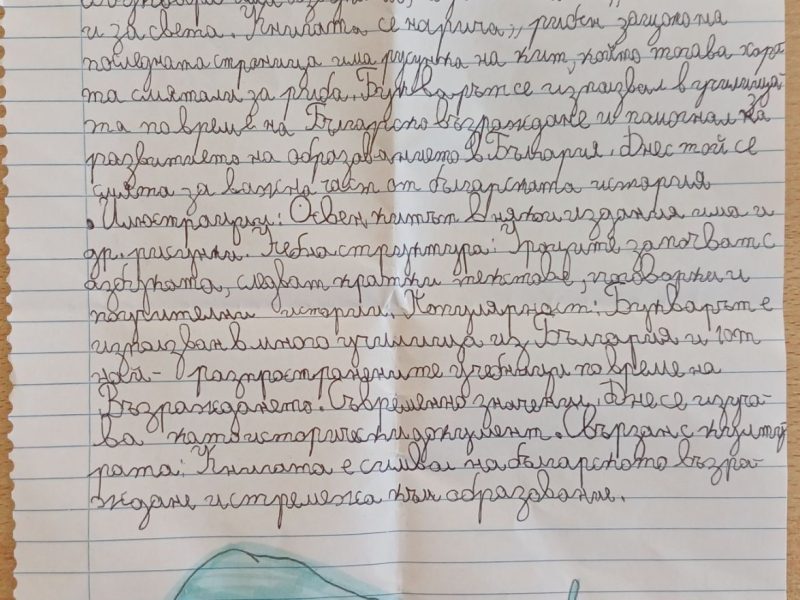 и за света. Книгата се нарича „ рибен защото на
последната страница има рисунка на кит, който тогава хора-
та смятали за риба. Букварът се използвал в училища-
та по време на Българско възраждане и помогнал за
развитието на образованието в България. Днес той се
смята за важна част от българската история
. Илюстрации: Освен китът в някои издания има и
др. рисунки. Учебна структура: Уроците започват с
азбуката, следват кратки текстове, поговорки и
поучителни истории. Популярност: Букварът е
използван в много училища из България и
най- разпространените учебници по време на
Възраждането. Съвременно значение. Днес се изуча-
ва като исторически документ. Свързан с култу
рата: Книгата е символ на българското възра-
ждане и стремежа към образование.